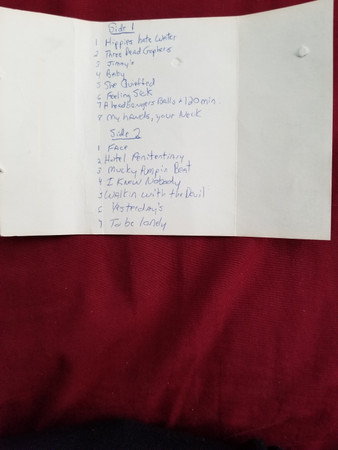 Side 1
1 Hippies hate Water
2 Three Dead Gophers
3 Jimmy's
4 Baby
5 She
6 Feeling Sick
7 A headbangers Balls + 120 min.
8 My hands, your Neck
Side 2
1 Face
2 Hotel Penitentiary
3 Mucky Pumpin Beat
4 I Know Nobody
5 Walkin with the Devil
6 Yesterday's
7 Turbo